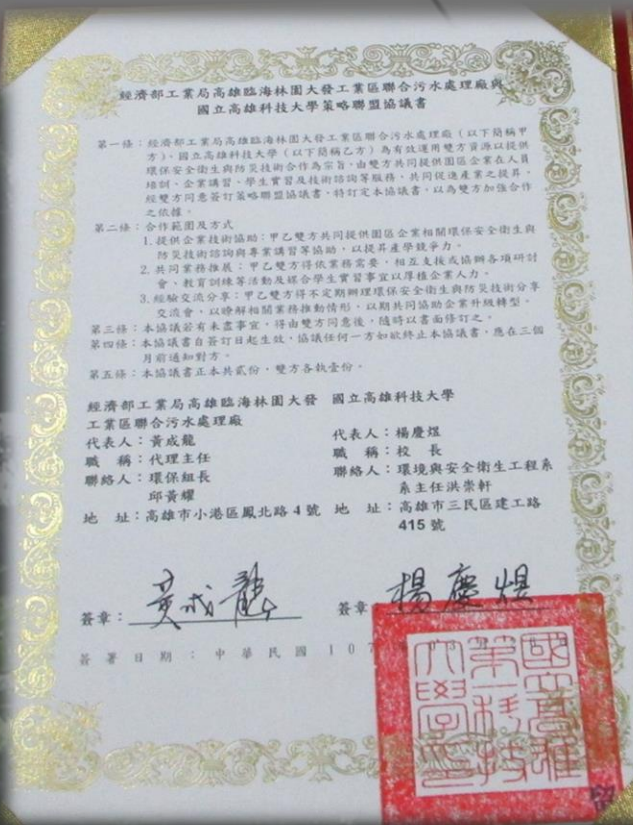 經濟部工業局高雄臨海林園大發工業區聯合污水處理廠與
國立高雄科技大學策略聯盟協議書
第一條：經濟部工業局高雄臨海林園大發工業區聯合污水處理廠（以下簡稱甲
方）、國立高雄科技大學（以下簡稱乙方）為有效運用雙方資源以提供
環保安全衛生與防災技術合作為宗旨，由雙方共同提供園區企業在人員
培訓、企業講習、學生實習及技術諮詢等服務，共同促進產業之提昇，
經雙方同意簽訂策略聯盟協議書，特訂定本協議書，以為雙方加強合作
之依據。
第二條：合作範圍及方式
1.提供企業技術協助：甲乙雙方共同提供園區企業相關環保安全衛生與
防災技術諮詢與專業講習等協助，以提昇產學競爭力。
2.共同業務推展：甲乙雙方得依業務需要，相互支援或協辦各項研討
會、教育訓練等活動及媒合學生實習事宜以厚植企業人力。
3.經驗交流分享：甲乙雙方得不定期辦理環保安全衛生與防災技術分享
交流會，以瞭解相關業務推動情形，以期共同協助企業升級轉型。
第三條：本協議若有未盡事宜，得由雙方同意後，隨時以書面修訂之。
第四條：本協議書自簽訂日起生效，協議任何一方如欲終止本協議書，應在三個
月前通知對方。
第五條：本協議書正本共貳份，雙方各執壹份。
經濟部工業局高雄臨海林園大發 國立高雄科技大學
工業區聯合污水處理廠
代表人：黃成龍 代表人：楊慶煜
職 稱：代理主任 職 稱：校 長
聯絡人：環保組長 聯絡人：環境與安全衛生工程系
邱黃耀 系主任洪崇軒
地 址：高雄市小港區鳳北路 4 號 地 址：高雄市三民區建工路
415 號
簽章：黃成龍 簽章 楊慶煜
簽署日期：中華民國 107
國立高雄
第一科技
大學印